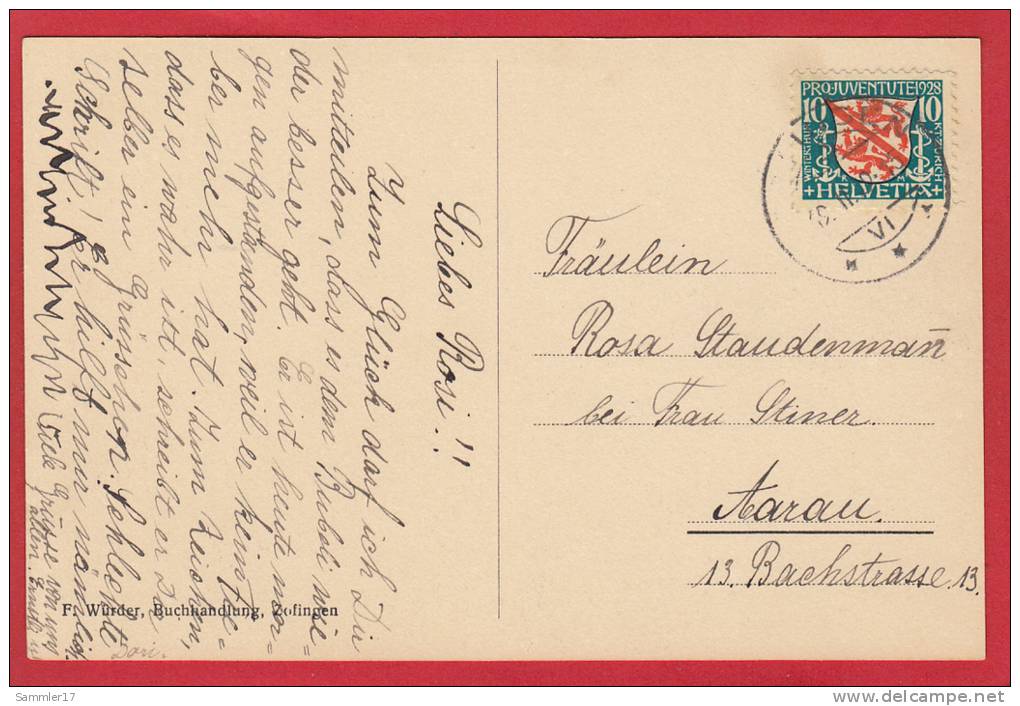 Liebes Rosi!!
Zum Glück darf ich Dir
mitteilen, dass es dem Bubeli wie=
der besser geht. Er ist heute mor=
gen aufgestanden, weil er kein Fie=
ber mehr hat. Zum Zeichen,
dass es wahr ist, schreibt er Dir
selber ein Grüsschen. Schlechte
Schrift! er hilft mir nämlich.
Viele Grüsse von uns
allen.
Dori.
F. Würder, Buchhandlung, Zofingen
PRO JUVENTUTE 1928
10 10
WINTERTHUR
KT. ZÜRICH
+ HELVETIA +
VI
Fräulein
Rosa Staudenman̄
bei Frau Stiner.
Aarau.
13. Bachstrasse 13.
Sammler17
delcampe.net